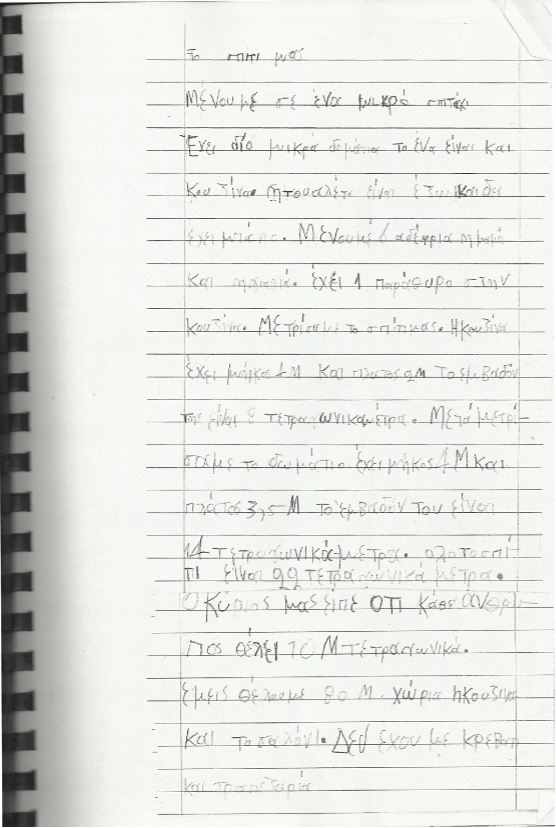 Το σπιτι μας
Μένουμε σε ένα μικρό σπιτάκι
Έχει δίο μικρά δομάτια το ένα είναι και
κουζίνα. η τουαλέτα είναι έξω και δεν
έχει μπάνιο. Μένουμε 6 αδέφρια η μαμά
και η γιαγιά. έχει 1 παράθυρο στην
κουζίνα. Μετρίσαμε το σπίτιμας. Ηκουζίνα
έχει μήκος 4 Μ και πλατος 2 Μ Το εμβαδόν
της είναι 8 τετραγωνικαμέτρα. Μετά μετρί-
σαμε το δωμάτιο έχει μήκος 4 Μ και
πλάτος 3,5 Μ το εμβαδόν του είναι
14 τετραγωνικά μετρα. ολοτοσπί-
τι είναι 22 τετραγωνικά μετρα.
Ο Κύριος μας είπε ότι κάθε άνθρω-
πος θέλει 10 Μ τετραγωνικά.
εμεις θέλουμε 80 Μ. χώρια ηκουζίνα
και το σαλόνι. Δεν έχουμε κρεβατι
και τραπεζαρία